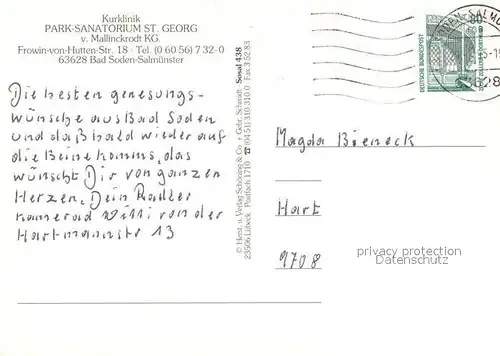 Kurklinik
PARK-SANATORIUM ST. GEORG
v. Mallinckrodt KG.
Frowin-von-Hutten-Str. 18 · Tel. (0 60 56) 7 32-0
63628 Bad Soden-Salmünster
Die besten genesungs-
wünsche aus Bad Soden
und daß bald wieder auf
die Beine komms, das
wünscht Dir von ganzen
Herzen, Dein Radler
kamerad Willi von der
Hartmannstr 13
© Herst. u. Verlag Schöning & Co + Gebr. Schmidt · Sosal 438
23506 Lübeck Postfach 1710 ☎ (04 51) 310 310 0 · Fax 3 52 83
80
DEUTSCHE BUNDESPOST
Magda Bieneck
Hart
9708
privacy protection
Datenschutz